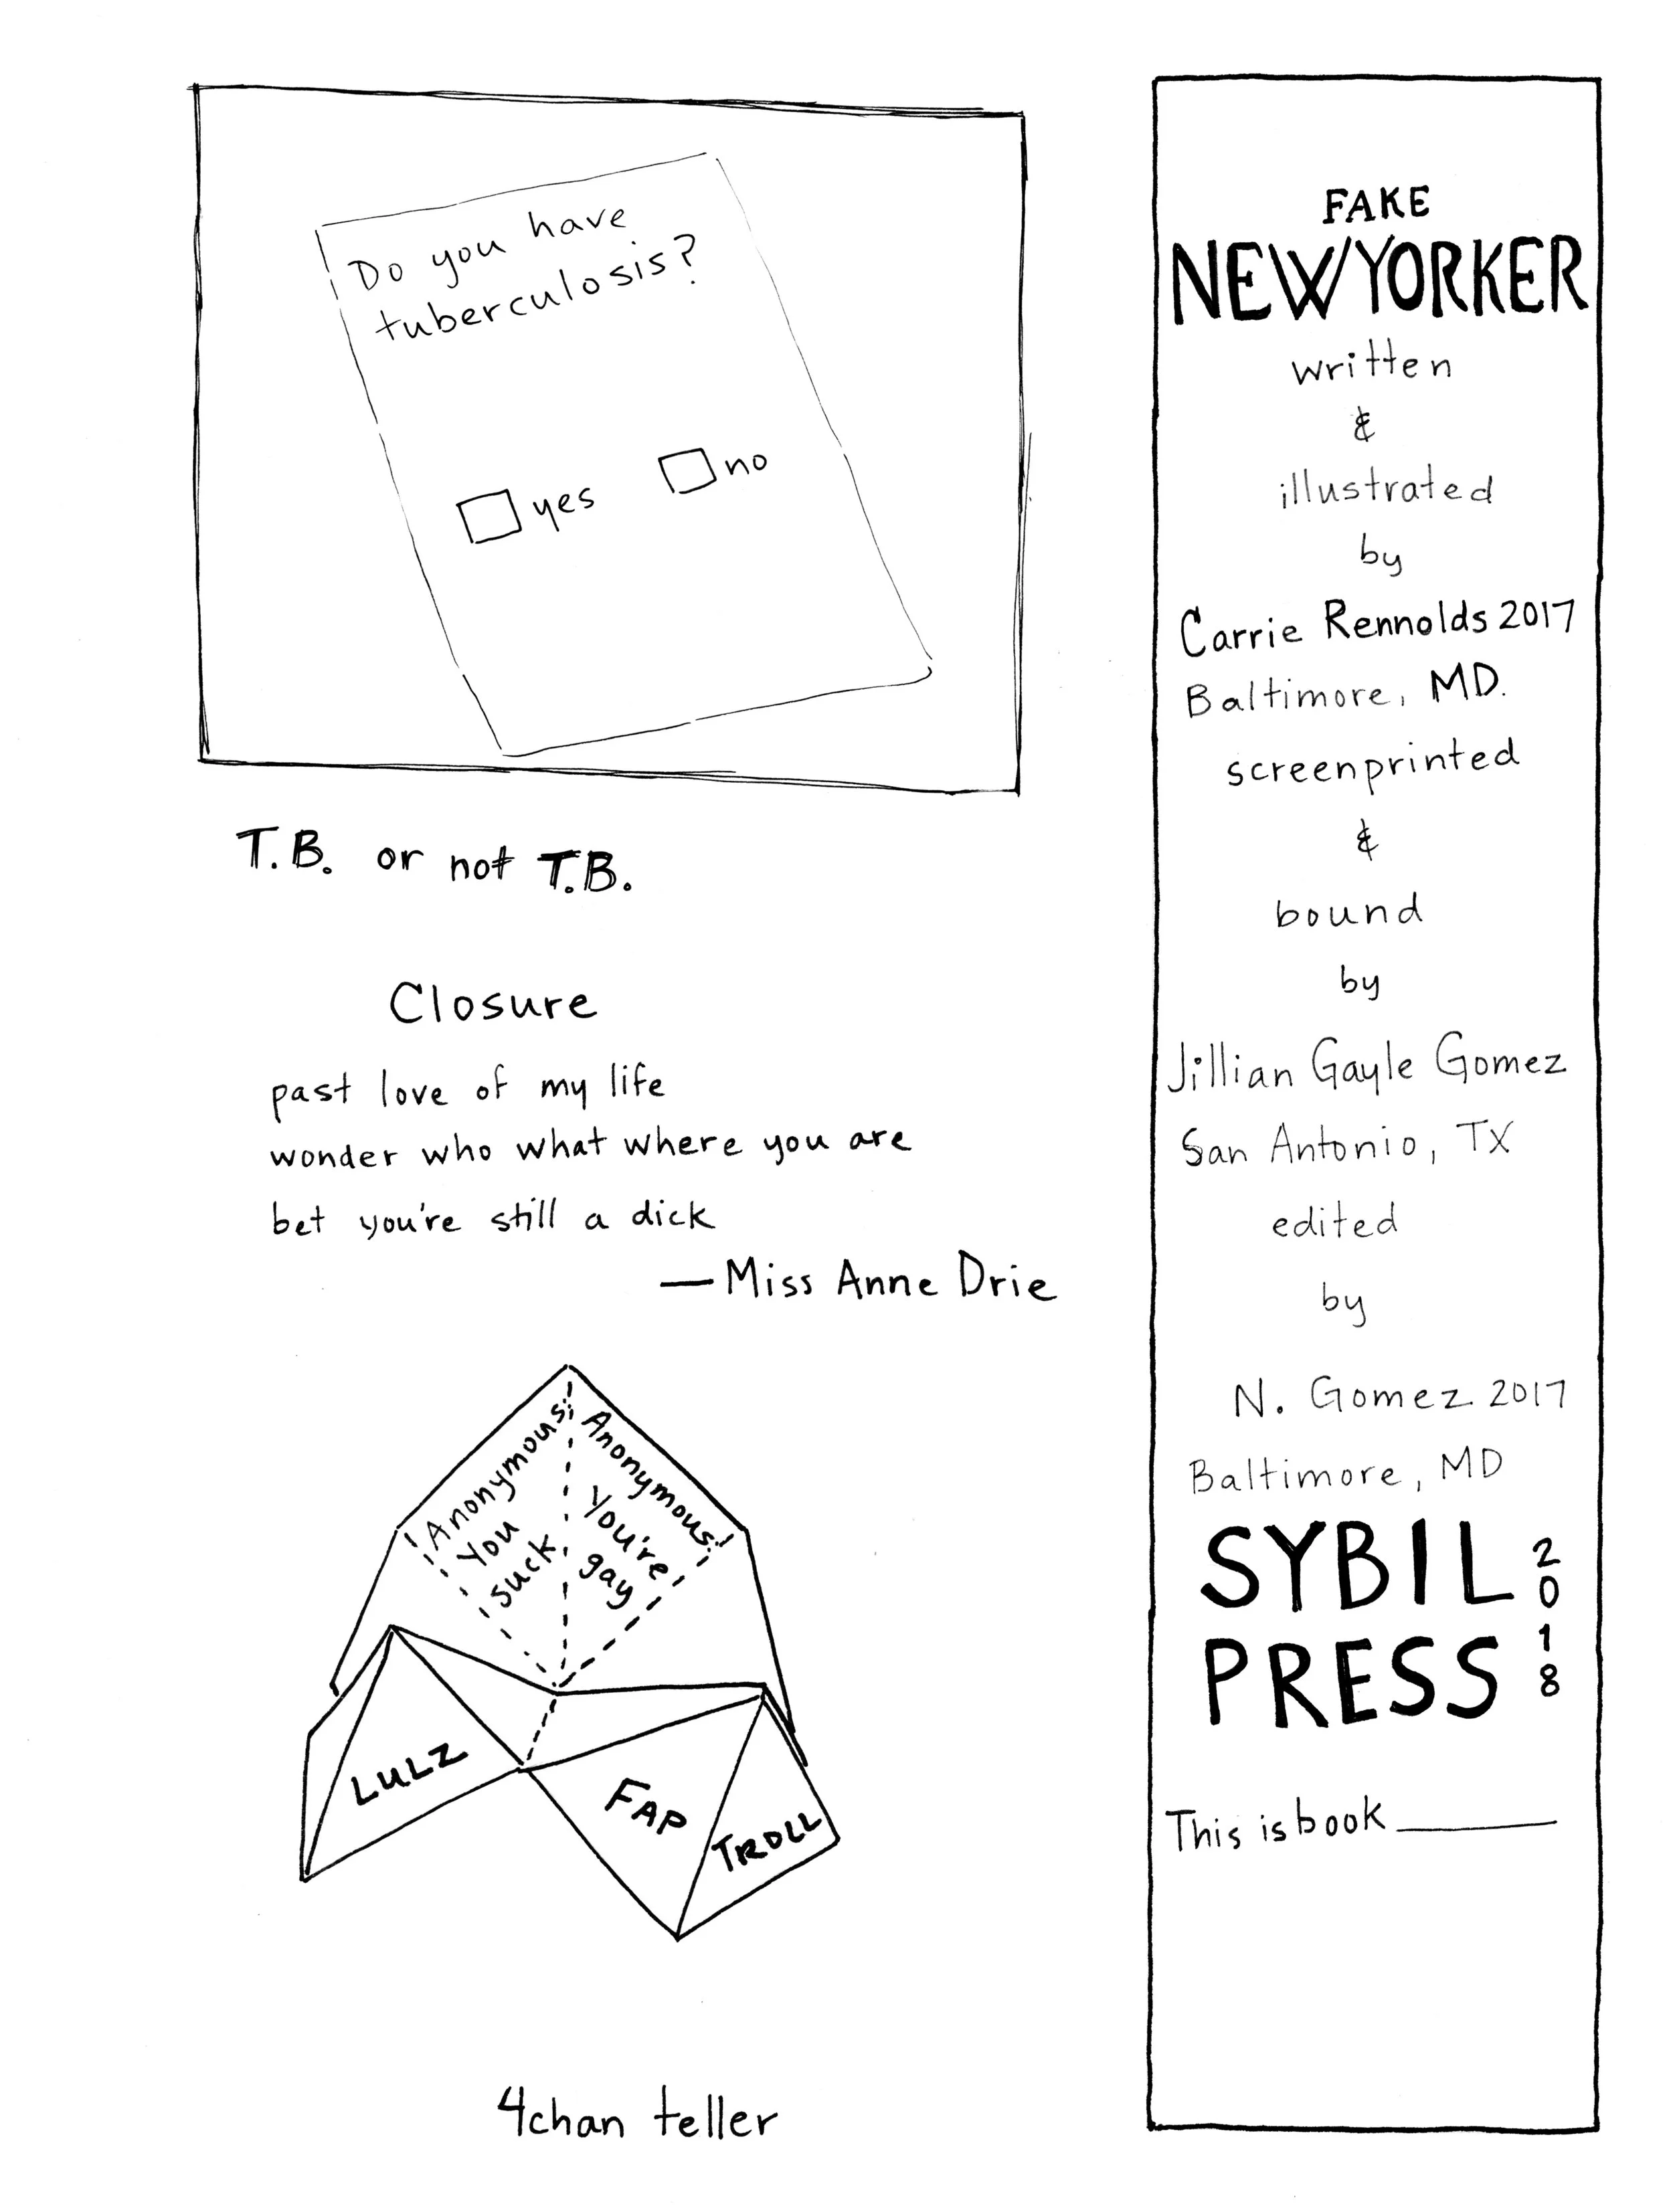 Do you have
tuberculosis?
yes
no
T.B. or not T.B.
Closure
past love of my life
wonder who what where you are
bet you're still a dick
— Miss Anne Drie
Anonymous:
You
suck
Anonymous:
You're
gay
LULZ
FAP
TROLL
4chan teller
FAKE
NEW YORKER
written
&
illustrated
by
Carrie Rennolds 2017
Baltimore, MD.
screenprinted
&
bound
by
Jillian Gayle Gomez
San Antonio, TX
edited
by
N. Gomez 2017
Baltimore, MD
SYBIL
PRESS
2018
This is book ______